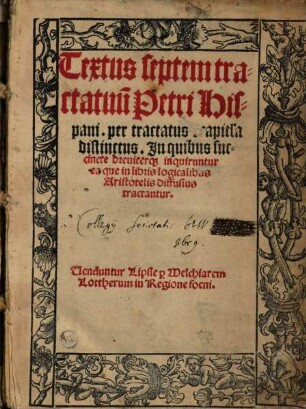 Textus septem tra-
ctatuũ Petri His-
pani. per tractatus capitľa
distinctus. In quibus suc-
cincte breuiterqȝ inquiruntur
ea que in libris logicalibus
Aristotelis diffusius
tractantur.
Collegij Societatis
Uenduntur Lipsie ꝑ Melchiarem
Lottherum in Regione foeni.